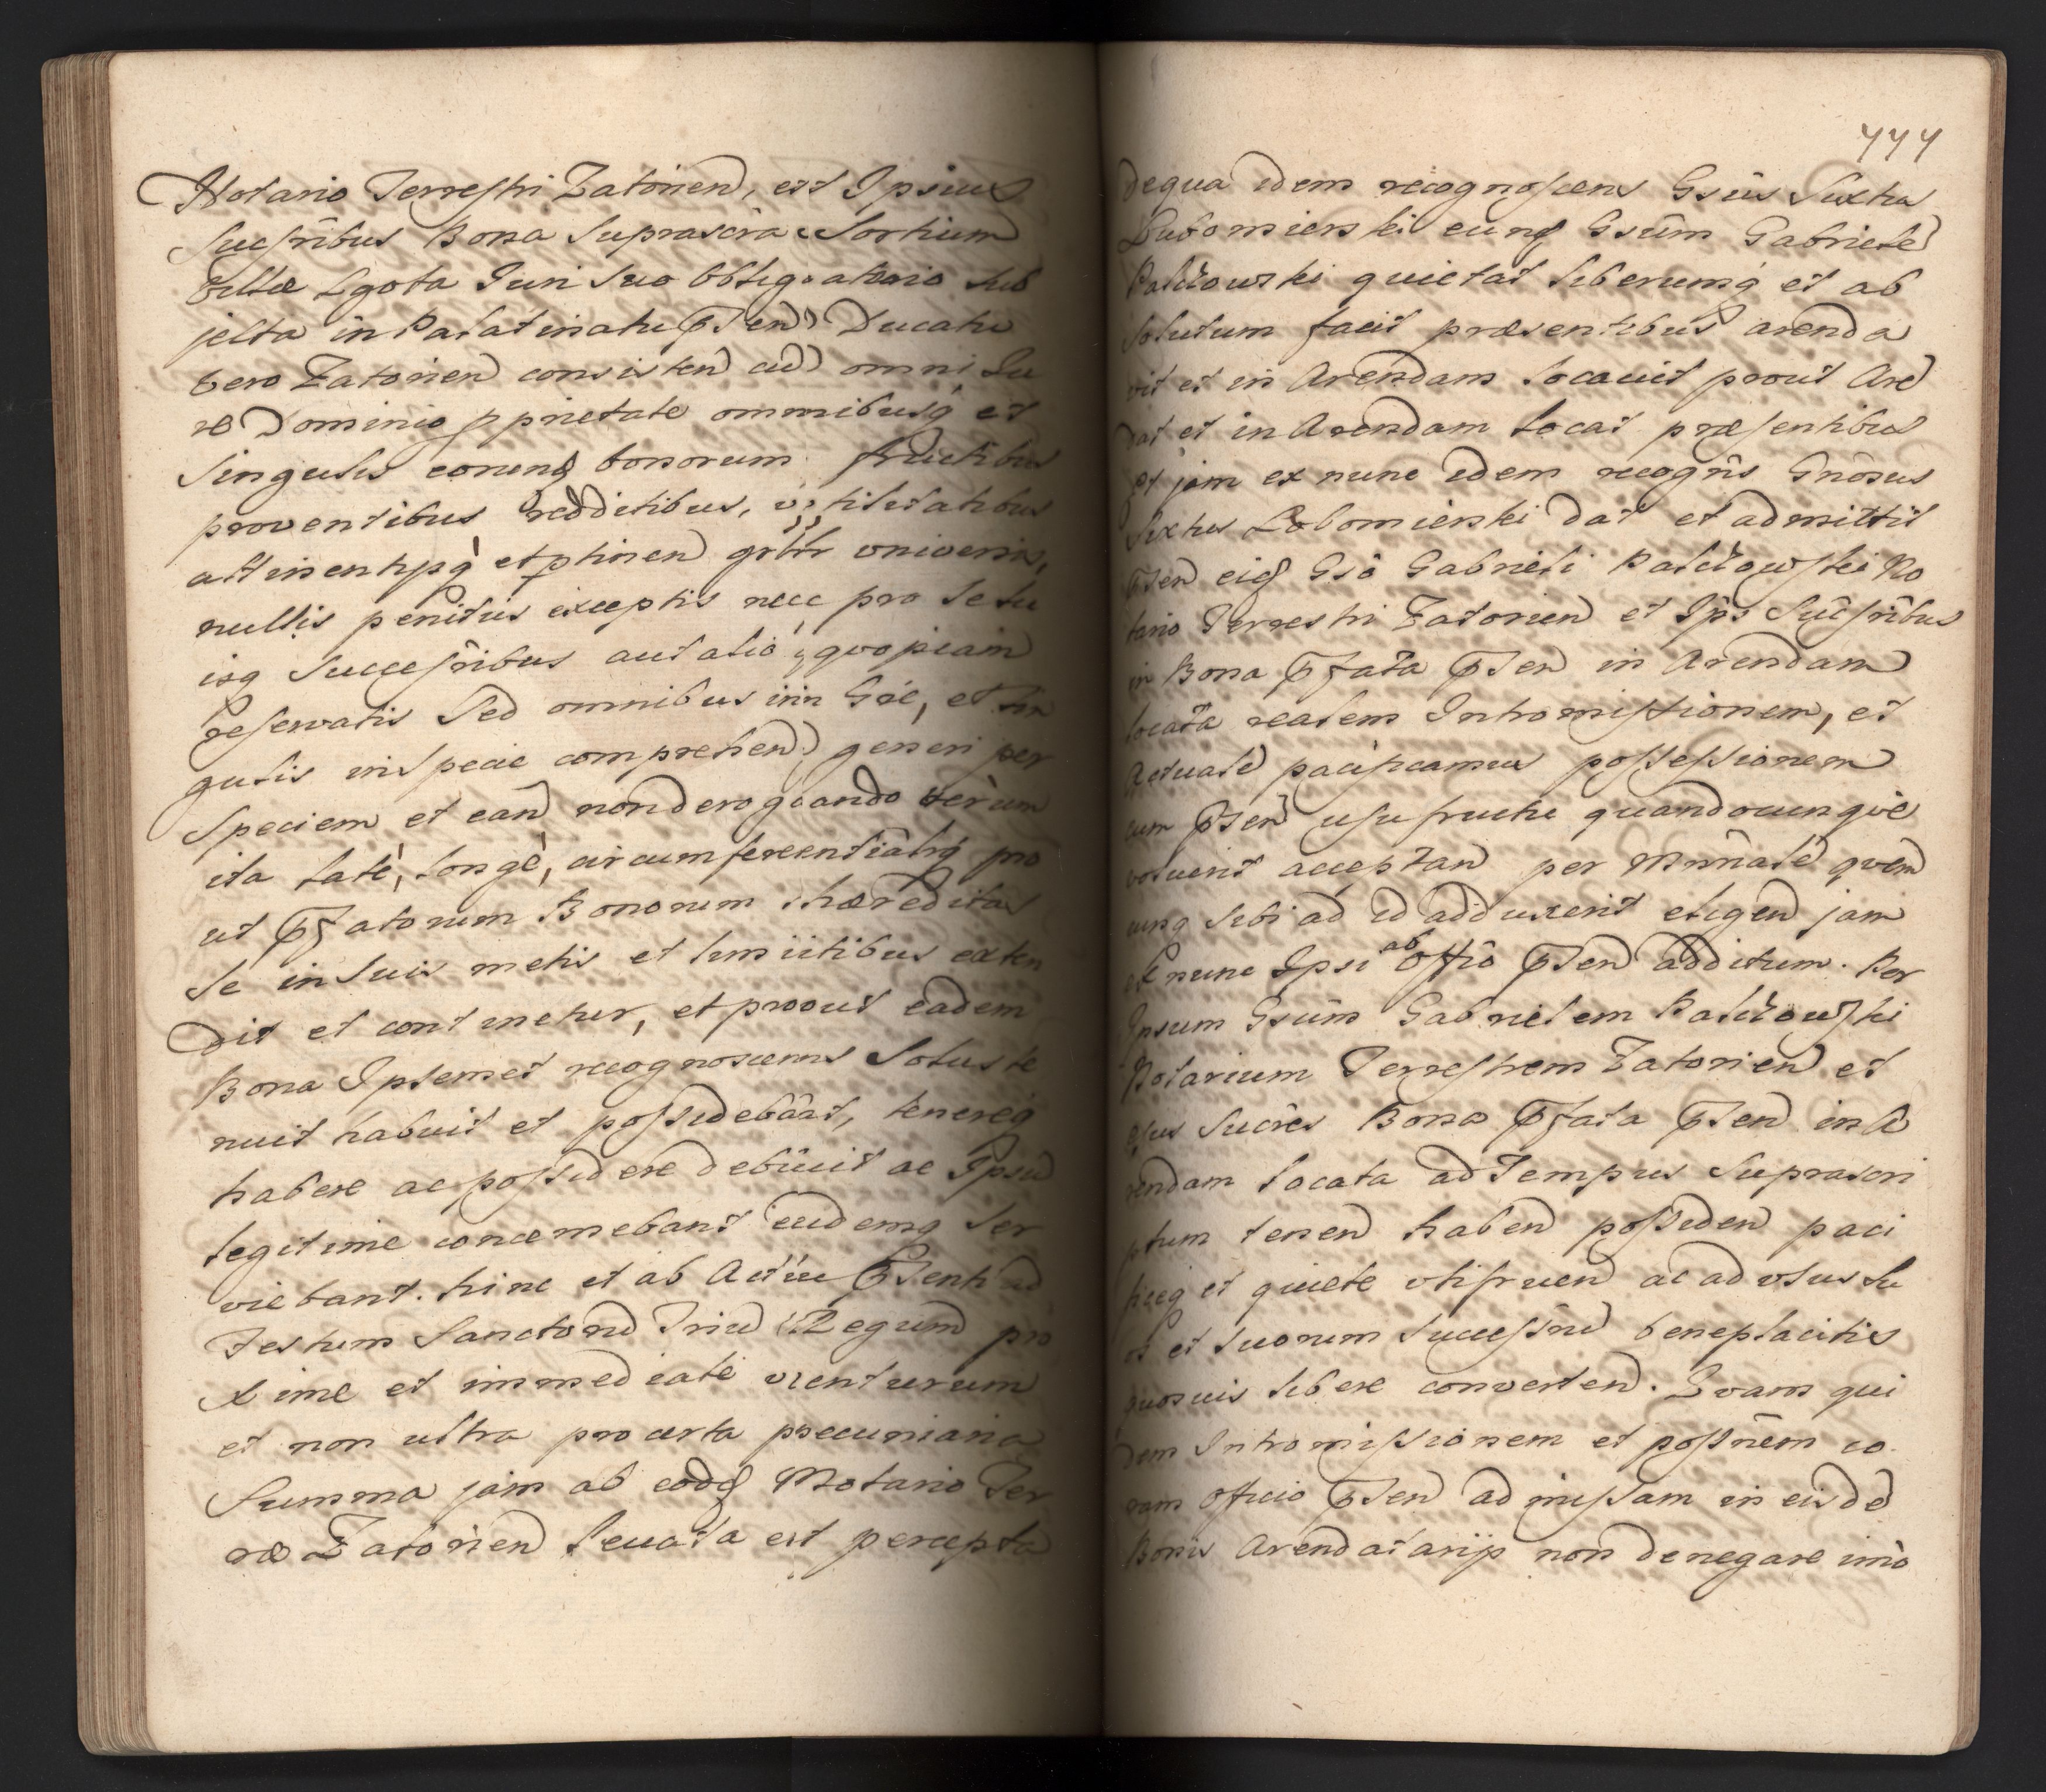 Notario Terrestri Zatorien, est Ipsius
Sucſribus Bona Suprascra Sortium
Villæ Lgota Juri Suo Obligatorio Sub
jecta in Palatinatu ꝑsen Ducatu
vero Zatorien consisten cu omni Ju
re Dominio ꝓprietate omnibusq et
Singulis eorund bonorum fructibus
proventibus redditibus, utilitatibus
attinentijsq et ptinen grltr universis,
nullis penitus exceptis nec pro Se Su
isq Succeſribus aut alio quopiam
reſervatis Sed omnibus in Gñe, et Sin
gulis in Specie comprehen generi per
Speciem et ean non derogando verum
ita latè, longè, circumferentialiq pro
ut ꝑfatorum Bonorum hæreditas
Se in Suis metis et limitibus exten
dit et continetur, et prout eadem
Bona Ipsemet recognoscens Solus te
nuit habuit et poſsidebat, tenereq
habere ac poſsidere debuit ac Ipsu
legitime concernebant eidemq Ser
viebant. hinc et ab Actu ꝑsenti ad
Festum Sanctoru Triu Regum pro
xime et immediatè venturum
et non ultra pro certa pecuniaria
Summa jam ab eodē Notario Ter
ræ Zatorien levata est percepta
444
de qua idem recognoſcens Gsus Sixtus
Lubomierski eund Gsum Gabriele
Palczowski quietat liberumq et ab
Solutum facit præsentibus arenda
vit et in Arendam locavit prout Aren
dat et in Arendam locat præſentibus
et jam ex nunc idem recogns Gnosus
Sixtus Lobomierski dat et admittit
ꝑsen eid Gso Gabrieli Palczowſki No
tario Terrestri Zatorien et Ips Sucſribus
in Bona ꝑfata ꝑsen in Arendam
locata realem Intromiſsionem, et
Actuale pacificamus poſseſsionem
cum ꝑsen uſufructu quandocunque
voluerit acceptan per Mnrale quem
cunq Sibi ad id adduxerit eligen jam
ex nunc Ipsi ab Offio ꝑsen additum. Per
Ipsum Gsum Gabrielem Palczowſki
Notarium Terreſtrem Zatorien et
ejus Sucres Bona ꝑfata ꝑsen in A
rendam locata ad Tempus Suprascri
ptum tenen haben poſsiden paci
ficeq et quiete utifruen ac ad usus Su
os et Suorum Succeſsru beneplacitis
quosvis libere converten. Quam qui
dem Intromiſsionem et poſsnem co
ram Officio ꝑsen admiſsam in eisde
Bonis Arendatarijs non denegare imò